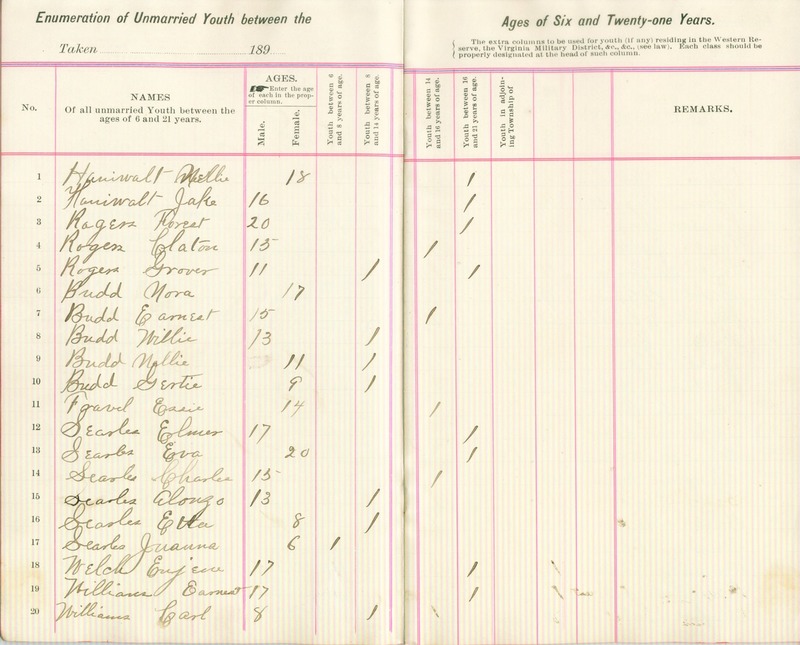 Enumeration of Unmarried Youth between the Ages of Six and Twenty-one Years.
Taken 189
The extra columns to be used for youth (if any) residing in the Western Re-
serve, the Virginia Military District, &c., &c., (see law). Each class should be
properly designated at the head of such column.
No.
NAMES
Of all unmarried Youth between the
ages of 6 and 21 years.
AGES.
Enter the age
of each in the prop-
er column.
Male.
Female.
Youth between 6
and 8 years of age.
Youth between 8
and 14 years of age.
Youth between 14
and 16 years of age.
Youth between 16
and 21 years of age.
Youth in adjoin-
ing Township of
REMARKS.
1 Haniwalt Nellie 18 /
2 Haniwalt Jake 16 /
3 Rogers Forest 20 /
4 Rogers Claton 15 /
5 Rogers Grover 11 / /
6 Budd Nora 17
7 Budd Earnest 15 /
8 Budd Willie 13 /
9 Budd Nellie 11 /
10 Budd Gertie 9 /
11 Fravel Essie 14 /
12 Searles Elmer 17 /
13 Searles Eva 20 /
14 Searles Charles 15 /
15 Searles Alonzo 13 /
16 Searles Etta 8 /
17 Searles Juanna 6 /
18 Welch Eujene 17 /
19 Williams Earnest 17 /
20 Williams Carl 8 /